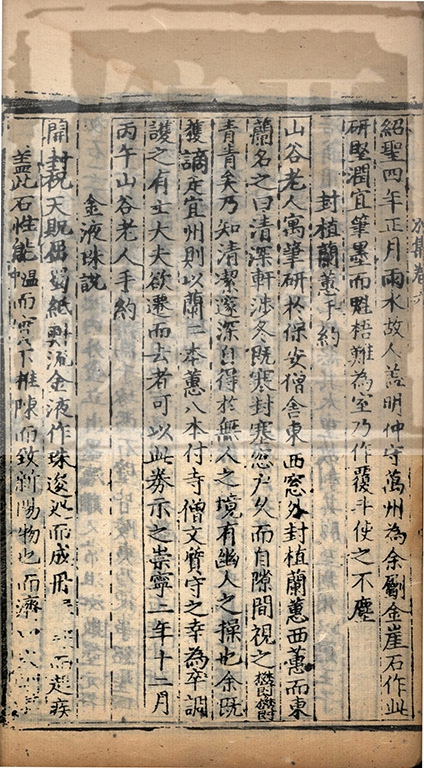 別集卷六
紹聖四年正月雨水故人盖明仲守萬州為余斸金崖石作此
研堅潤宜筆墨而魁梧難為室乃作覆斗使之不塵
封植蘭蕙手約
山谷老人寓筆研於保安僧舍東西窓外封植蘭蕙西蕙而東
蘭名之曰清深軒涉冬既寒封塞窓戶久而自隙間視之欝欝
青青矣乃知清潔邃深自得於無人之境有幽人之操也余既
獲謫宜州則以蘭二本蕙八本付寺僧文質守之幸為卒調
護之有士大夫欲遷而去者可以此券示之崇寧二年十二月
丙午山谷老人手約
金液珠說
開封祝天貺蜀紙裹流金液作珠而成丹而起疾
盖此石性能温而下推陳而致新陽物也而濟